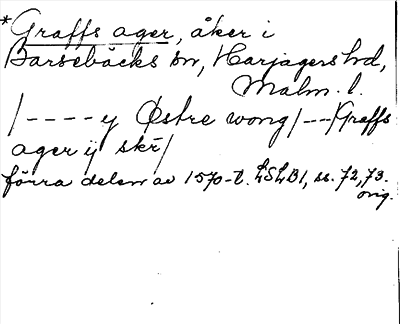 *Graffs ager, åker i
Barsebäcks sn, Harjagers hd,
Malm. l.
/----y Østre wong/--/Graffs
ager ij skr/
förra delen av 1570-t. LSLB1, ss. 72, 73.
orig.